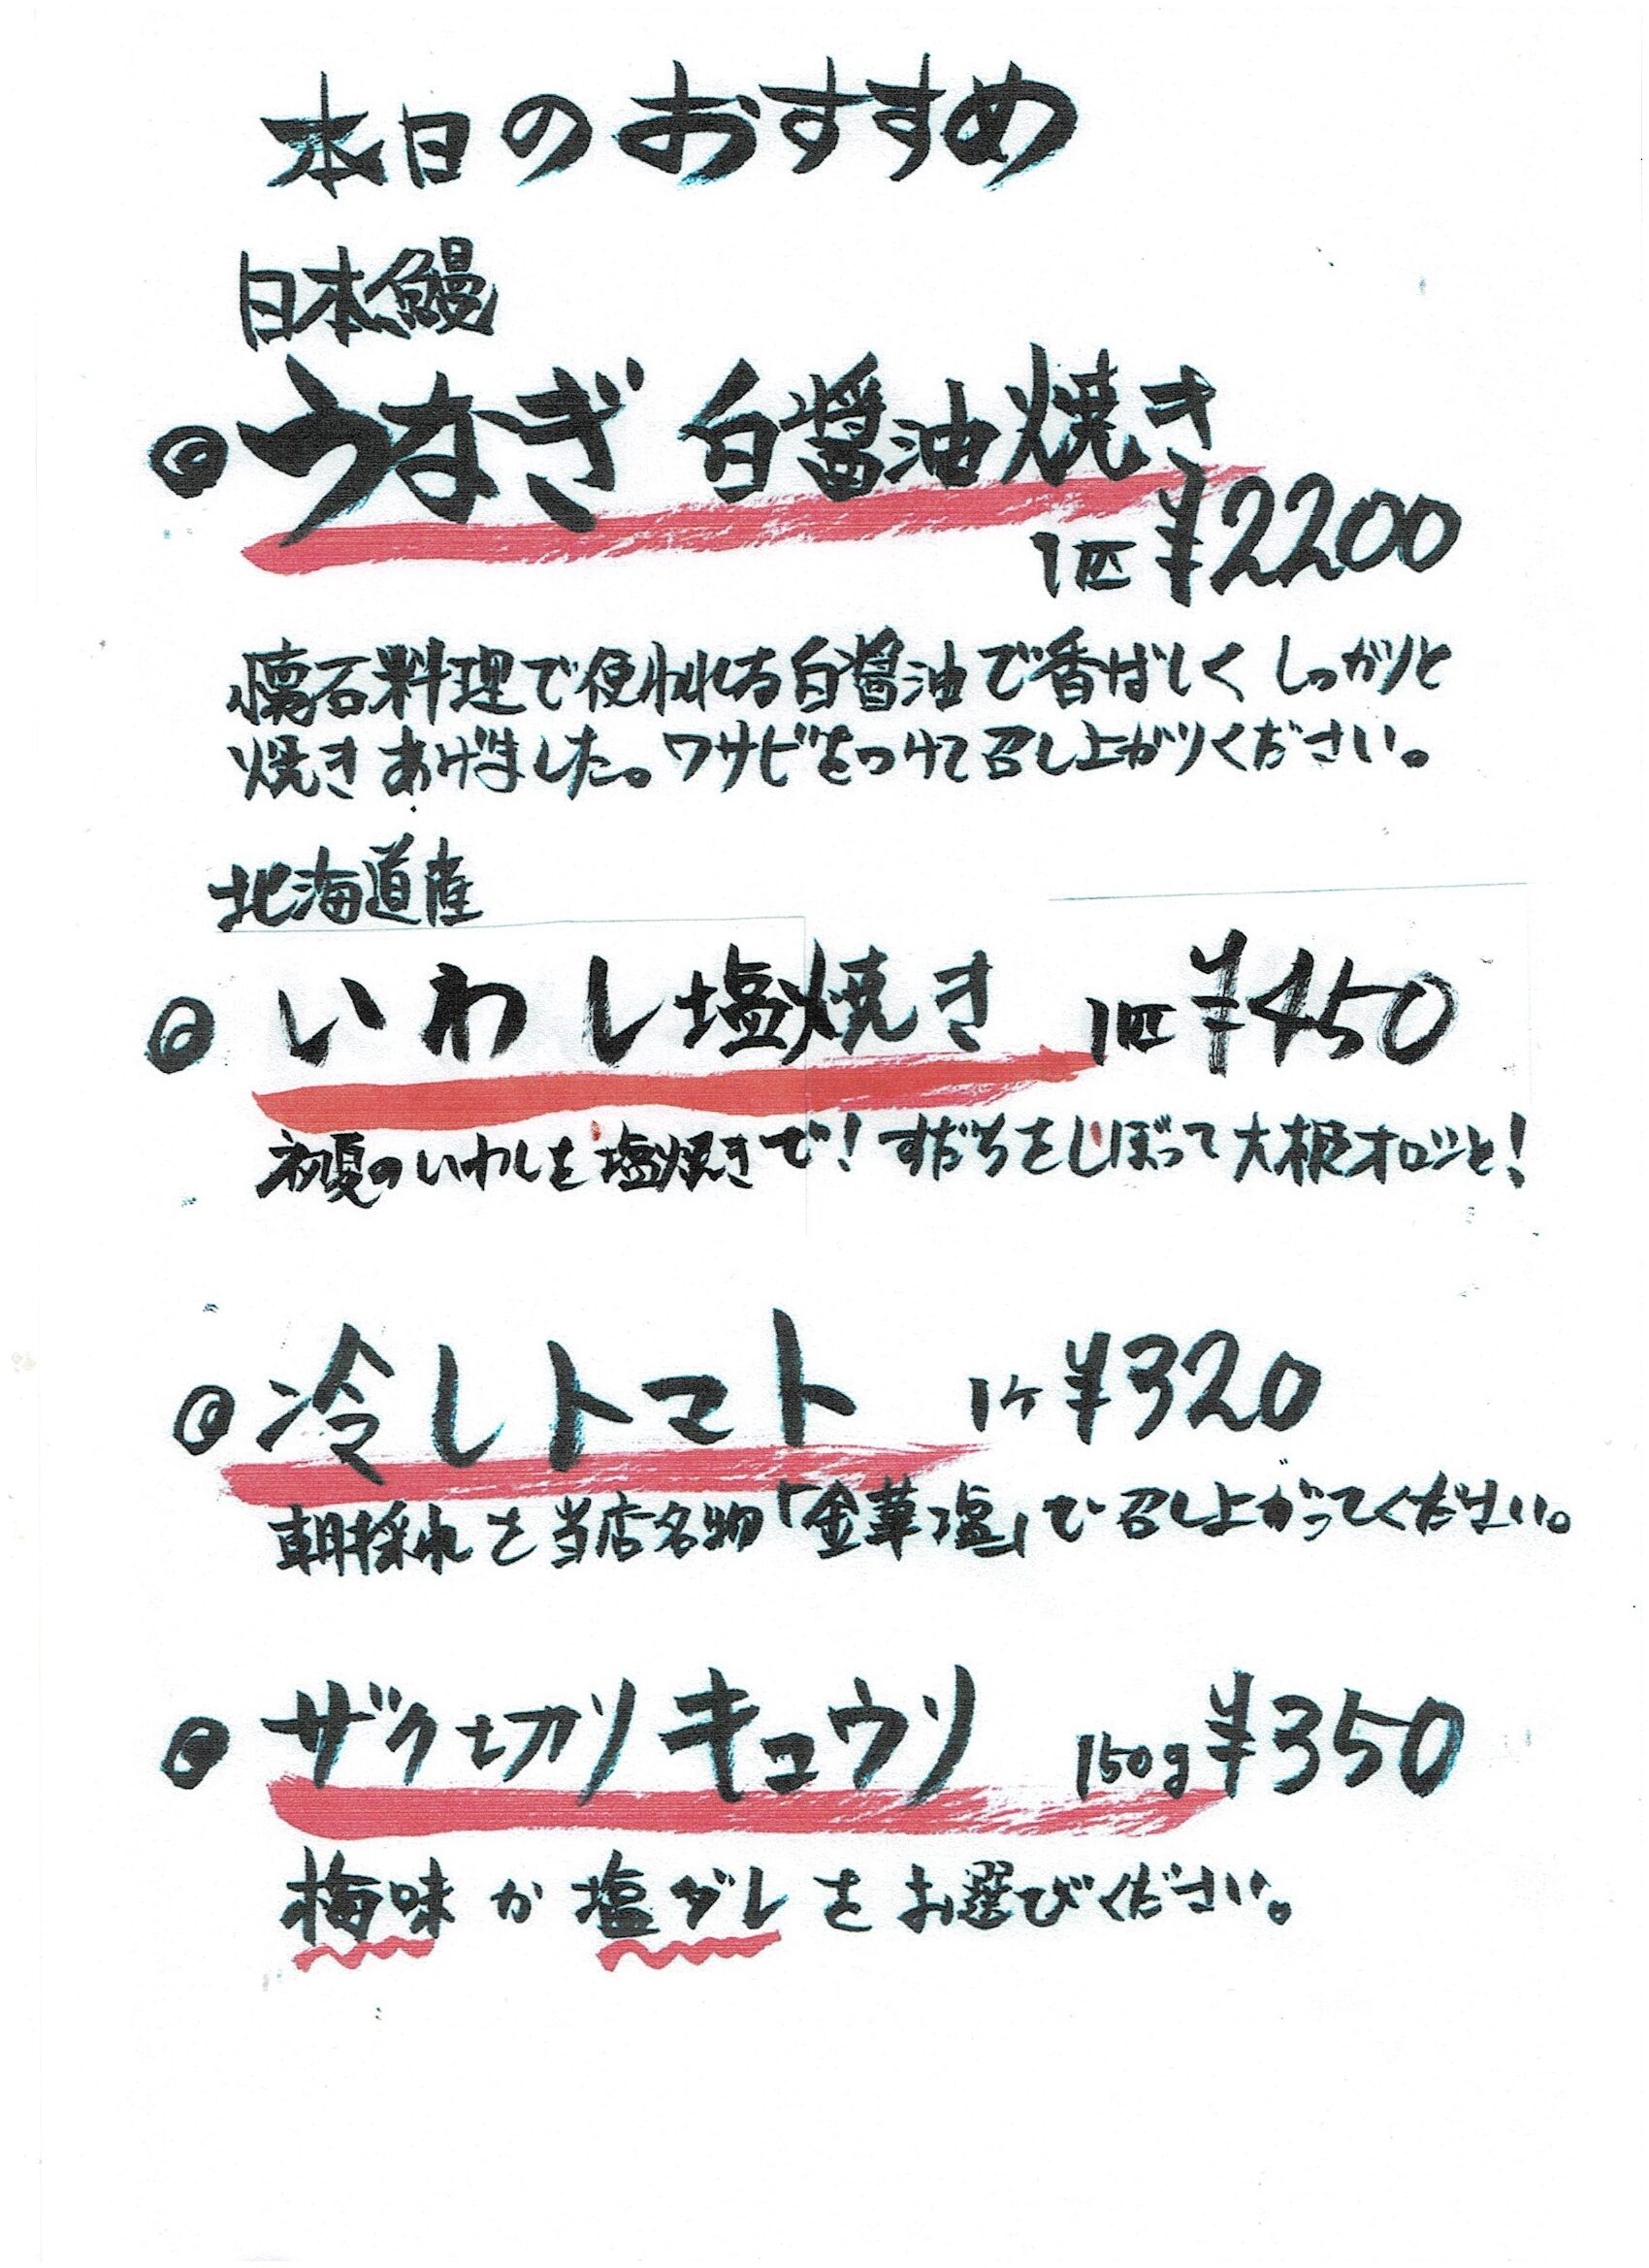 本日のおすすめ
日本鰻
◎うなぎ 白醤油焼き
1匹 ¥2200
懐石料理で使われる白醤油で香ばしく しっかりと
焼きあげました。ワサビをつけて召し上がりください。
北海道産
◎いわし塩焼き 1匹 ¥450
初夏のいわしを塩焼きで!すだちをしぼって大根オロシと!
◎冷しトマト 1ケ ¥320
朝採れを当店名物「金華塩」で召し上がってください。
◎ザク切リキュウリ 150g ¥350
梅味か塩ダレをお選びください。